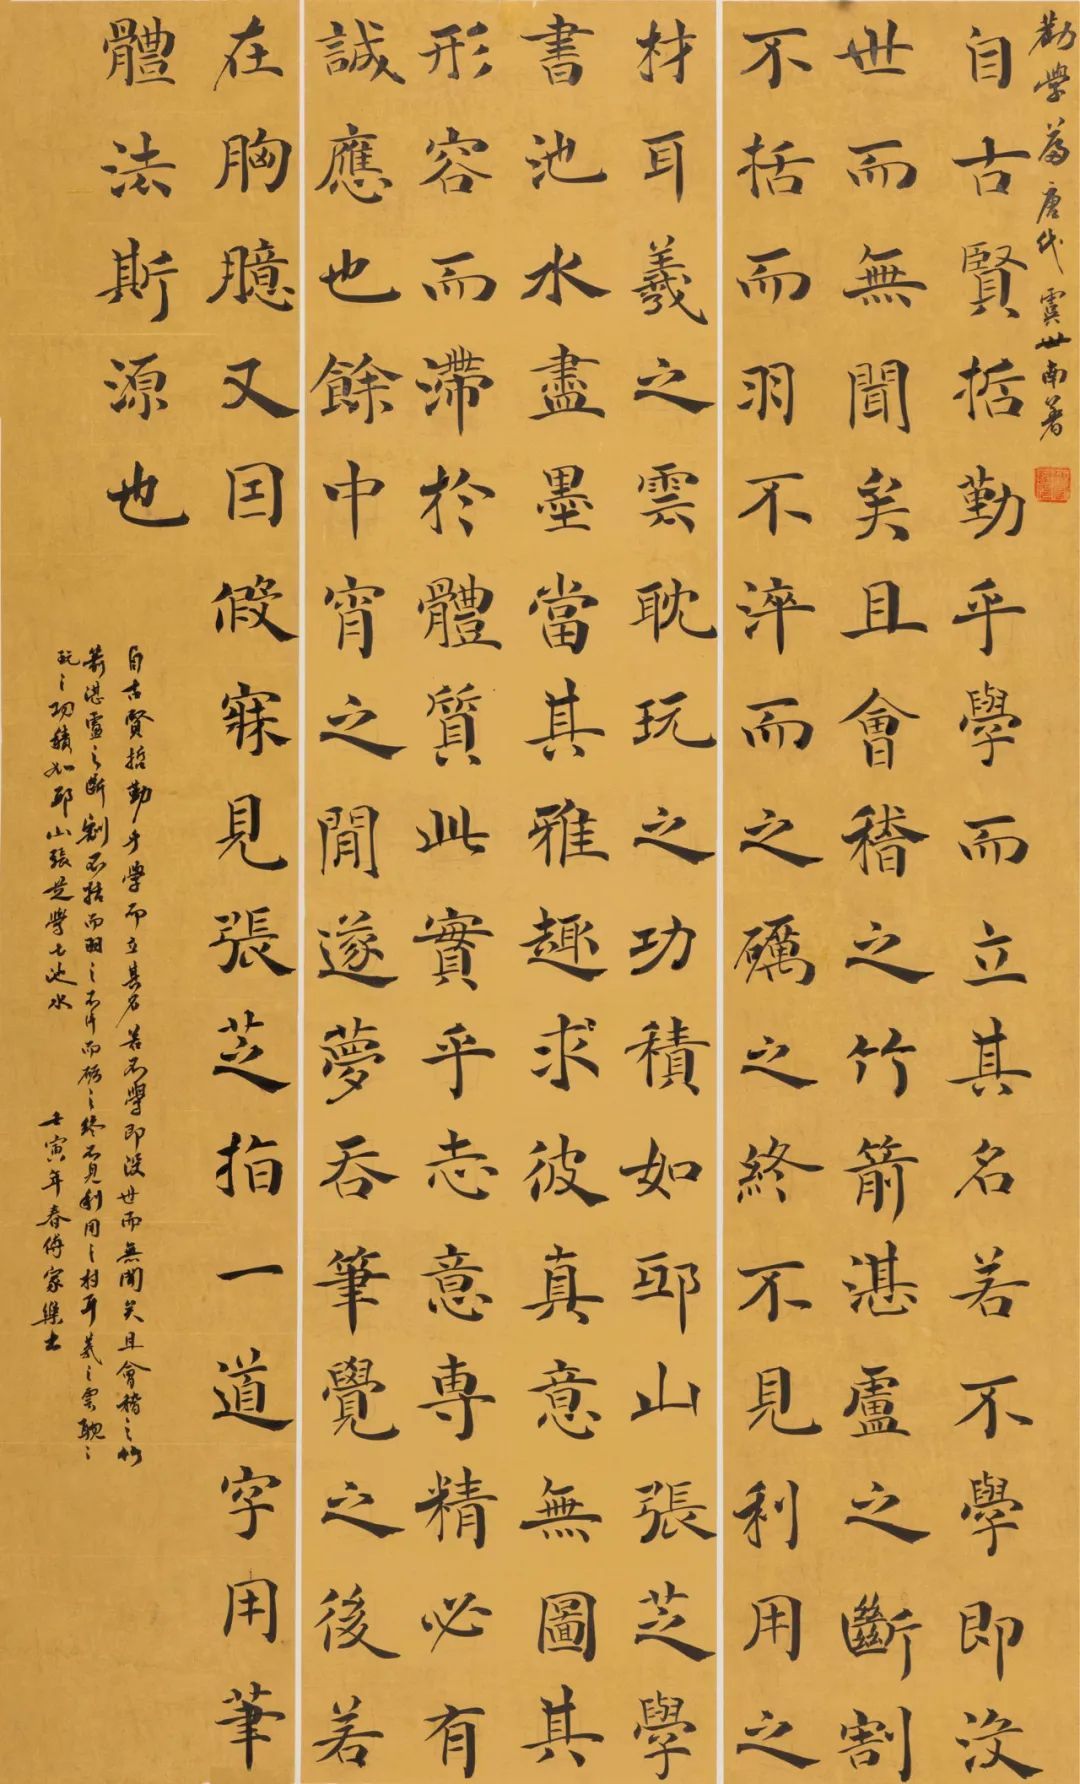 勸學篇唐代虞世南著
自古賢哲勤乎學而立其名若不學即沒
世而無聞矣且會稽之竹箭湛盧之斷割
不括而羽不淬而之礪之終不見利用之
材耳羲之雲耽玩之功積如邱山張芝學
書池水盡墨當其雅趣求彼真意無圖其
形容而滯於體質此實乎志意専精必有
誠應也餘中宵之間遂夢吞筆覺之後若
在胸臆又因假寐見張芝指一道字用筆
體法斯源也
自古賢哲勤乎學而立其名若不學即没世而無聞矣且會稽之竹
箭湛盧之斷割不括而羽之不淬而礪之終不見利用之材耳羲之雲耽之
玩之功積如邱山張芝學書池水
壬寅年春傅家樂書